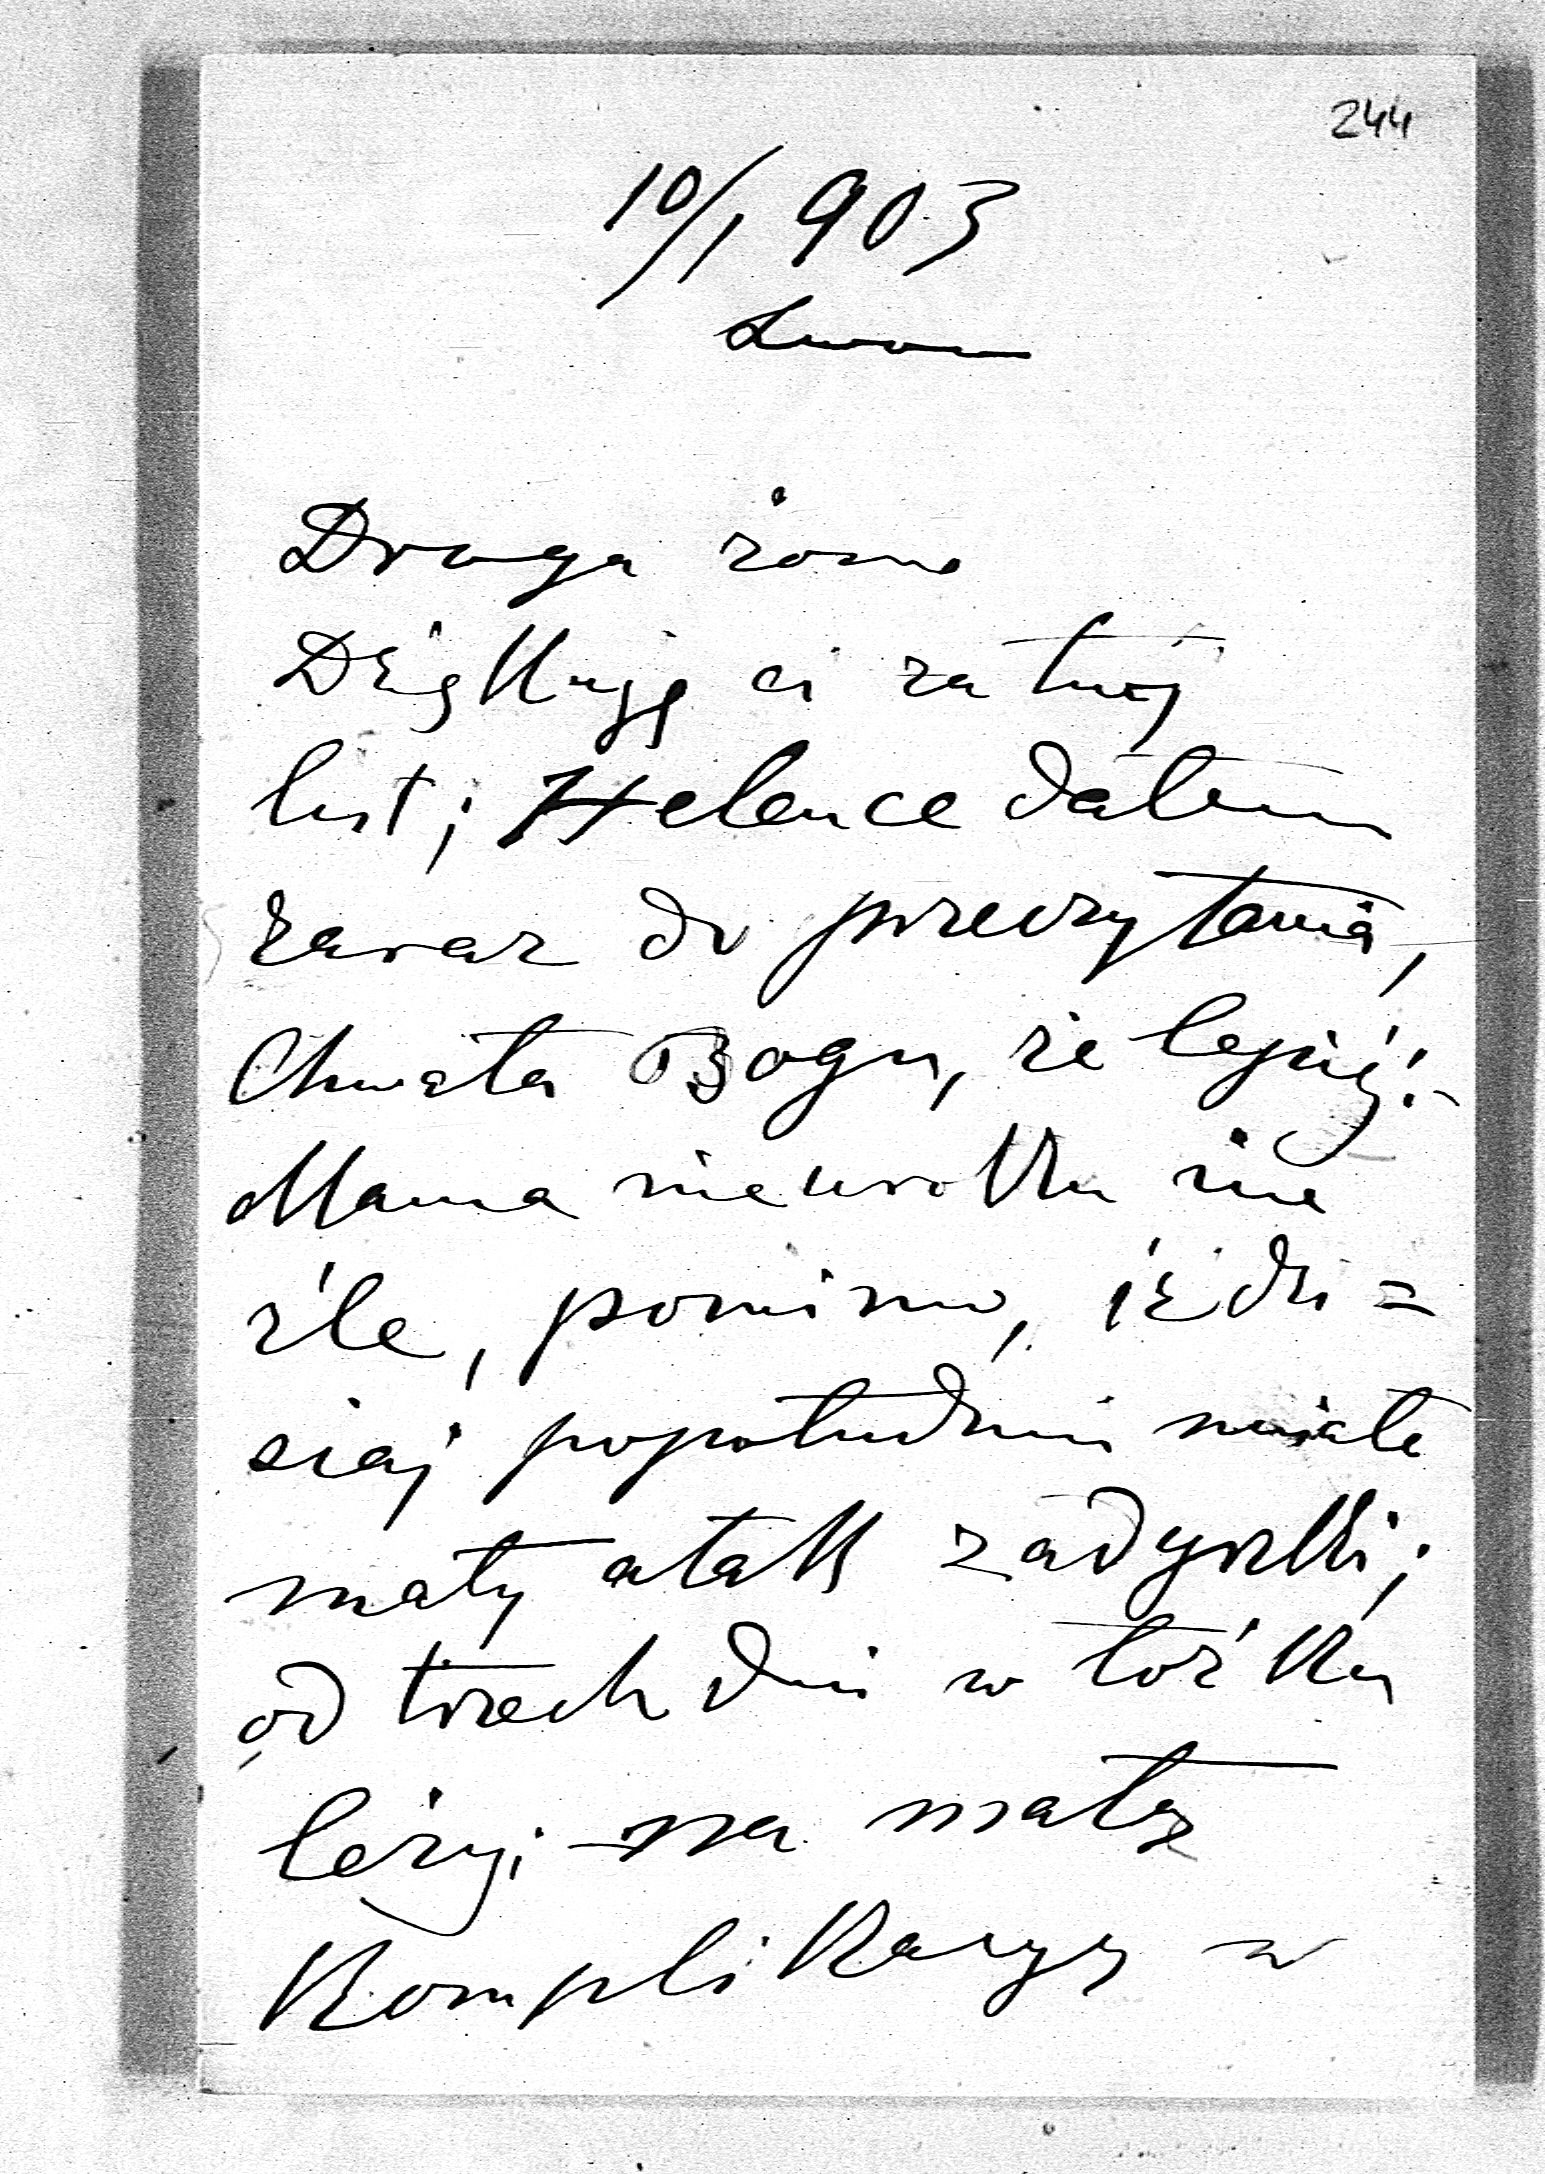 244
10/1 903
Lwow
Droga żono
Dziękuję ci za twój
list; Helence dałem
zaraz do przeczytania,
Chwała Bogu, że lepiej!-
Mama nieurokku nie
źle, pomimo, iż dzi=
siaj popołudniu miała
mały atak zadyszki;
od trzech dni w łóżku
leży; na małą
komplikacyę w